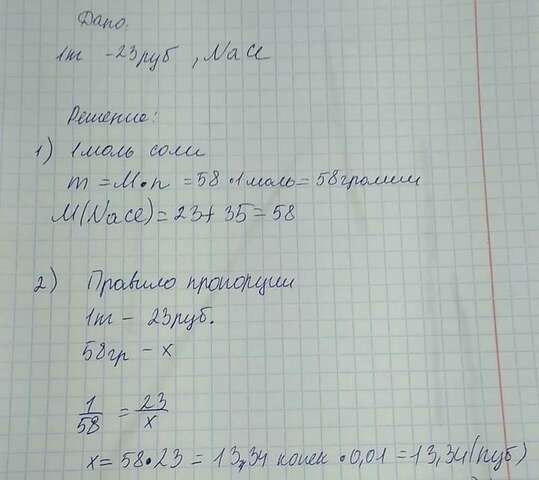 Дано:
1т - 23 руб , NaCl
Решение:
1) 1 моль соли
m = M • n = 58 • 1 моль = 58 грамм
M(NaCl) = 23 + 35 = 58
2) Правило пропорции
1т - 23 руб.
58 гр - x
1/58 = 23/x
x = 58 • 23 = 13,34 копек • 0,01 = 13,34 (руб)